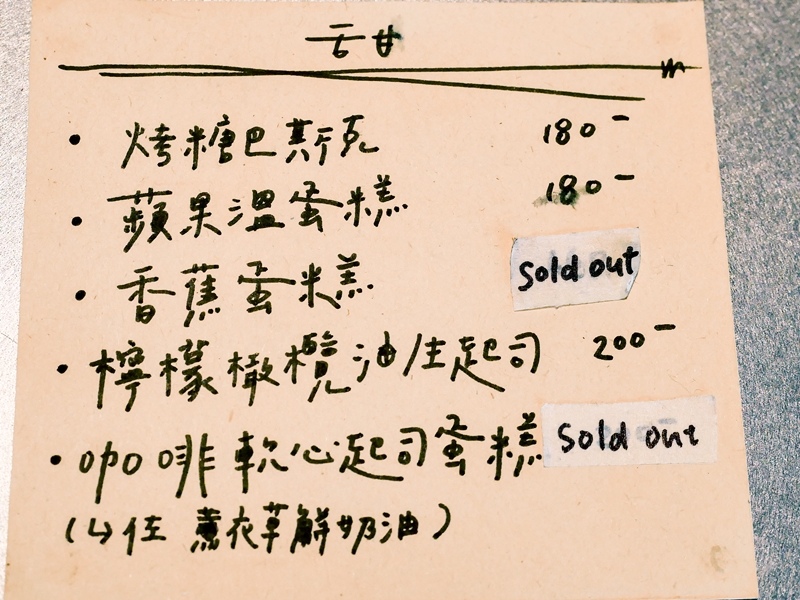 舌甘
• 烤糖巴斯克 180-
• 蘋果溫蛋糕 180-
• 香蕉蛋糕 Sold out
• 檸檬橄欖油生起司 200-
• 咖啡軟心起司蛋糕 Sold out
(↳佐 薰衣草鮮奶油)